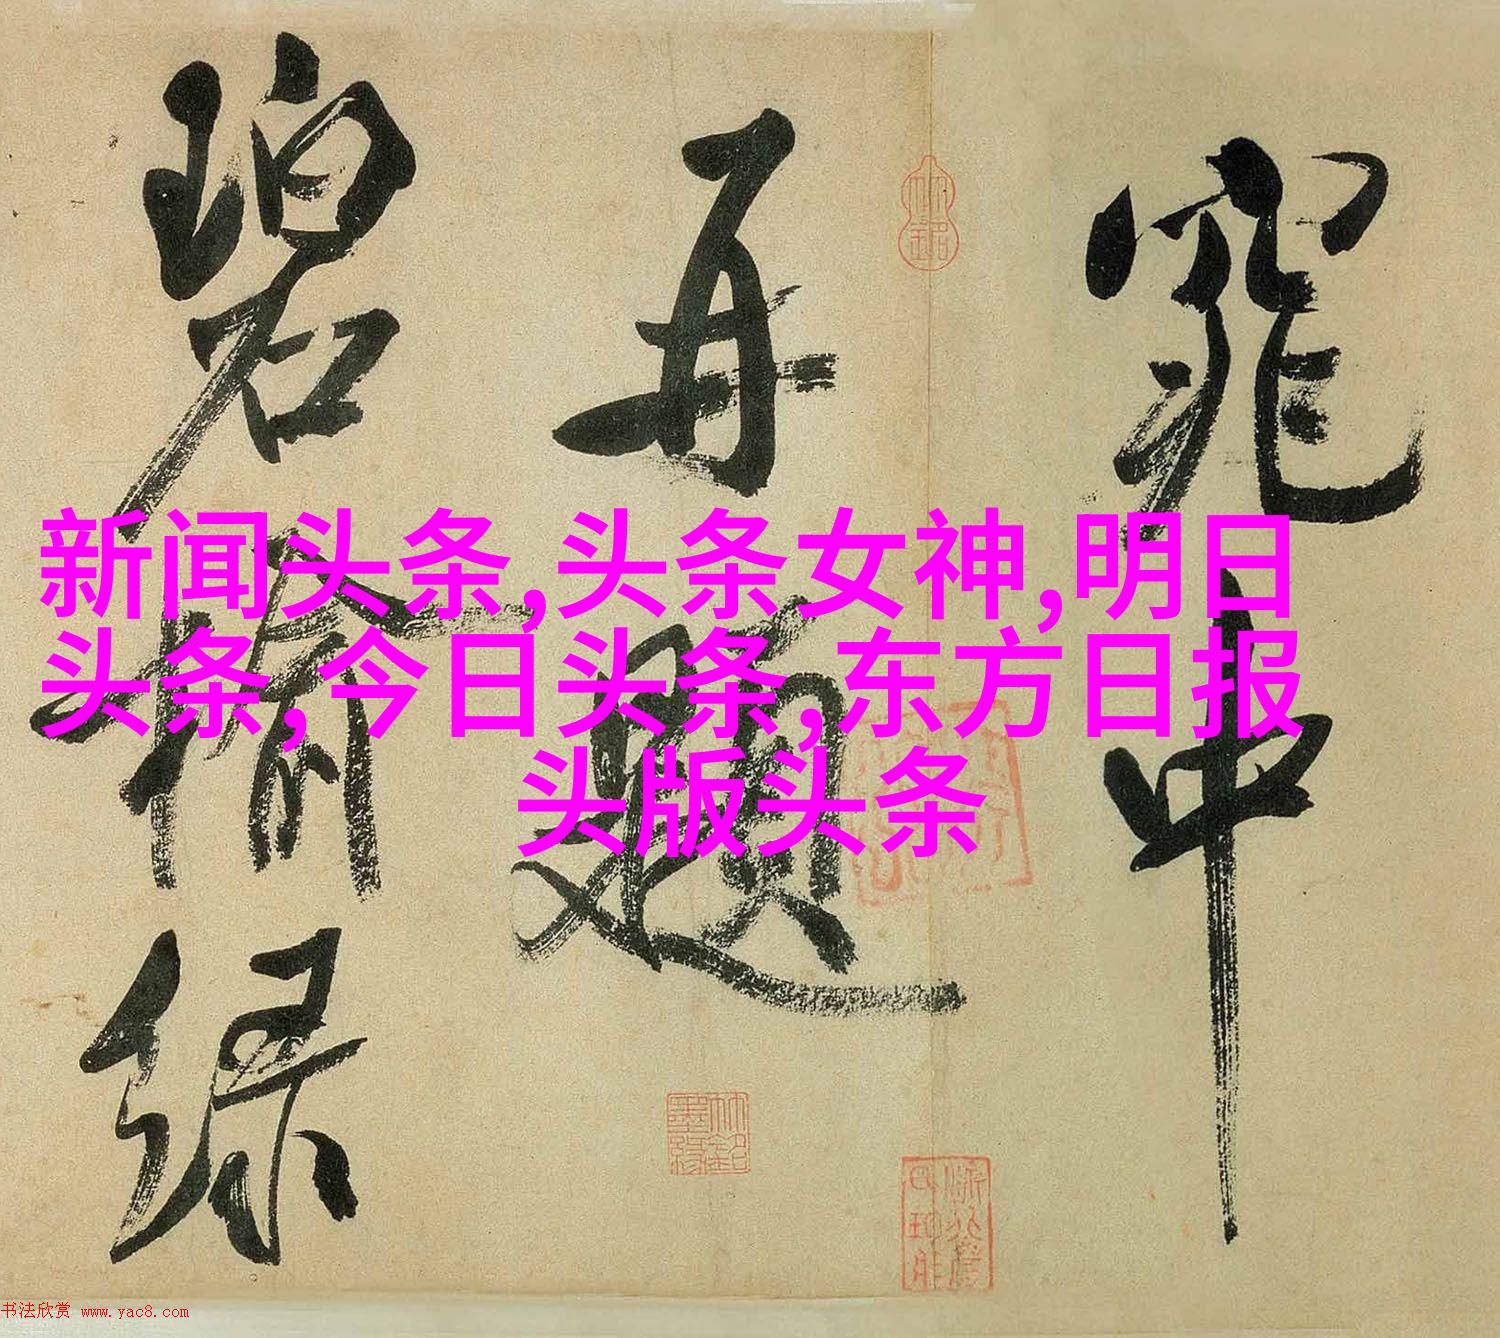 窕中
再題
碧榆綠
新闻头条,头条女神,明日
头条,今日头条,东方日报
头版头条
书法欣赏 www.yac8.com